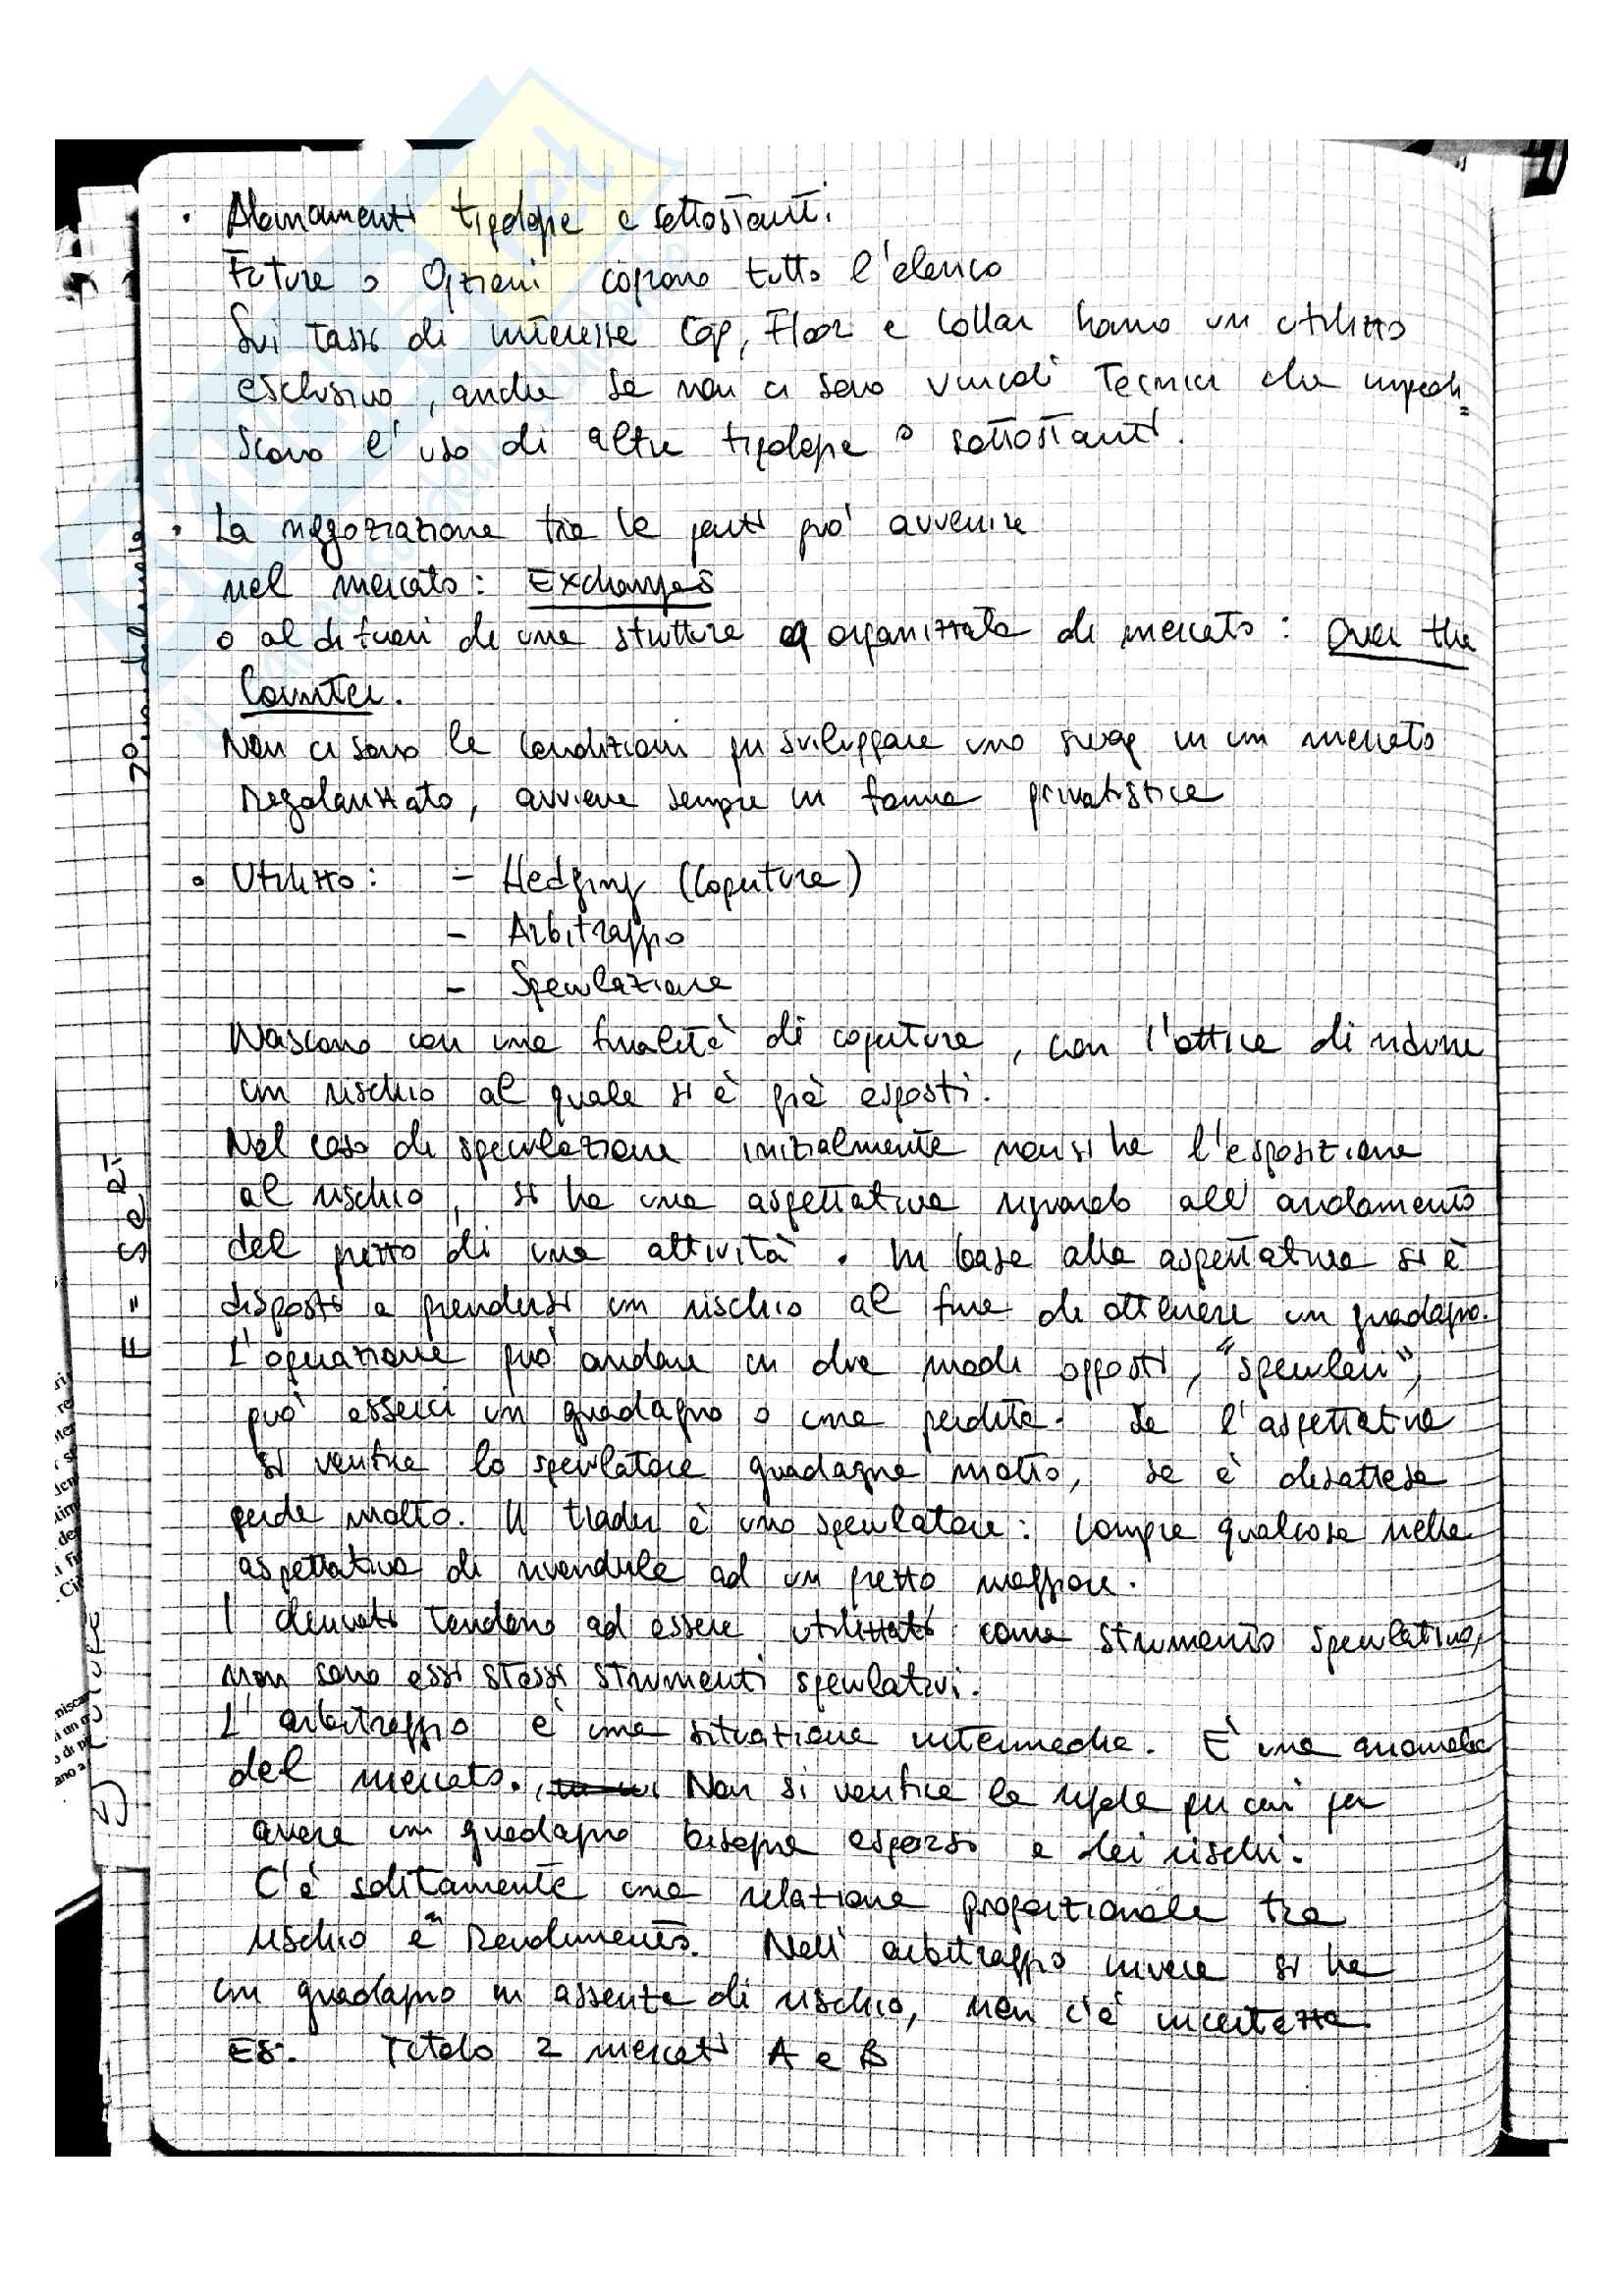 • Abbinamenti tipologie e sottostanti.
Future e Opzioni coprono tutto l'elenco
Sui tassi di interesse Cap, Floor e Collar hanno un utilizzo
esclusivo, anche se non ci sono vincoli tecnici che impedi=
scono l'uso di altre tipologie o sottostanti.
• La negoziazione tra le parti può avvenire
nel mercato: Exchanges
o al di fuori di una struttura organizzata di mercato: Over the
Counter.
Non ci sono le condizioni per sviluppare uno swap in un mercato
Regolarizzato, avviene sempre in forma privatistica
• Utilizzo: - Hedging (Copertura)
- Arbitraggio
- Speculazione
Nascono con una finalità di copertura, con l'ottica di ridurre
un rischio al quale si è già esposti.
Nel caso di speculazione inizialmente non si ha l'esposizione
al rischio, si ha una aspettativa riguardo all'andamento
del prezzo di una attività. In base alla aspettativa si è
disposti a prendersi un rischio al fine di ottenere un guadagno.
L'operazione può andare in due modi opposti, "speculari",
può esserci un guadagno o una perdita. Se l'aspettativa
si verifica lo speculatore guadagna molto, se è disattesa
perde molto. Il trader è uno speculatore: compra qualcosa nella
aspettativa di rivenderla ad un prezzo maggiore.
I derivati tendono ad essere utilizzati come strumento speculativo,
non sono essi stessi strumenti speculativi.
L'arbitraggio è una situazione intermedia. È una anomalia
del mercato. Non si verifica la regola per cui per
avere un guadagno bisogna esporsi a dei rischi.
C'è solitamente una relazione proporzionale tra
rischio e Rendimento. Nell'arbitraggio invece si ha
un guadagno in assenza di rischio, non c'è incertezza.
Es. Titolo 2 mercati A e B